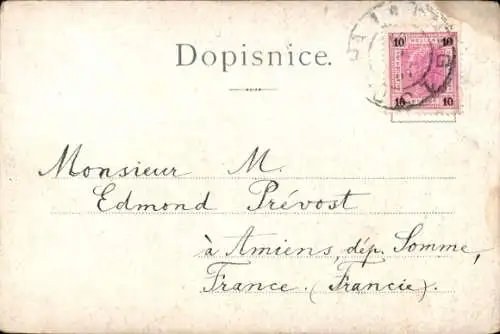 Dopisnice.
10 10
10 10
Monsieur M.
Edmond Prévost
à Amiens, dép. Somme,
France. (Francie).